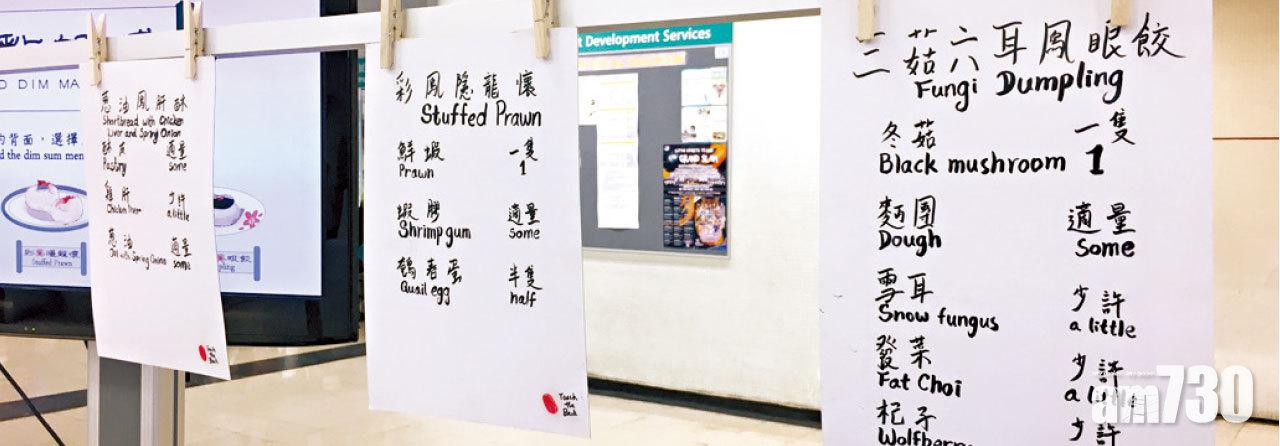 D DIM MA
的背面，選擇
d the dim sum men
Stuffed Prawn
蔥油鳳肝酥
Shortbread with Chicken
Liver and Spring Onion
酥皮 適量
Pastry some
雞肝 少許
Chicken liver a little
蔥油 適量
Oil with Spring Onion some
Touch the Back
彩鳳隱龍懷
Stuffed Prawn
鮮蝦 一隻
Prawn 1
蝦膠 適量
Shrimp gum some
鵪春蛋 半隻
Quail egg half
Touch
the
Back
t Development Services
GRAND SLAM
二菇六耳鳳眼餃
Fungi Dumpling
冬菇 一隻
Black mushroom 1
麵團 適量
Dough Some
雪耳 少許
Snow fungus a little
發菜 少許
Fat Choi a little
杞子 少許
Wolfberr
am730